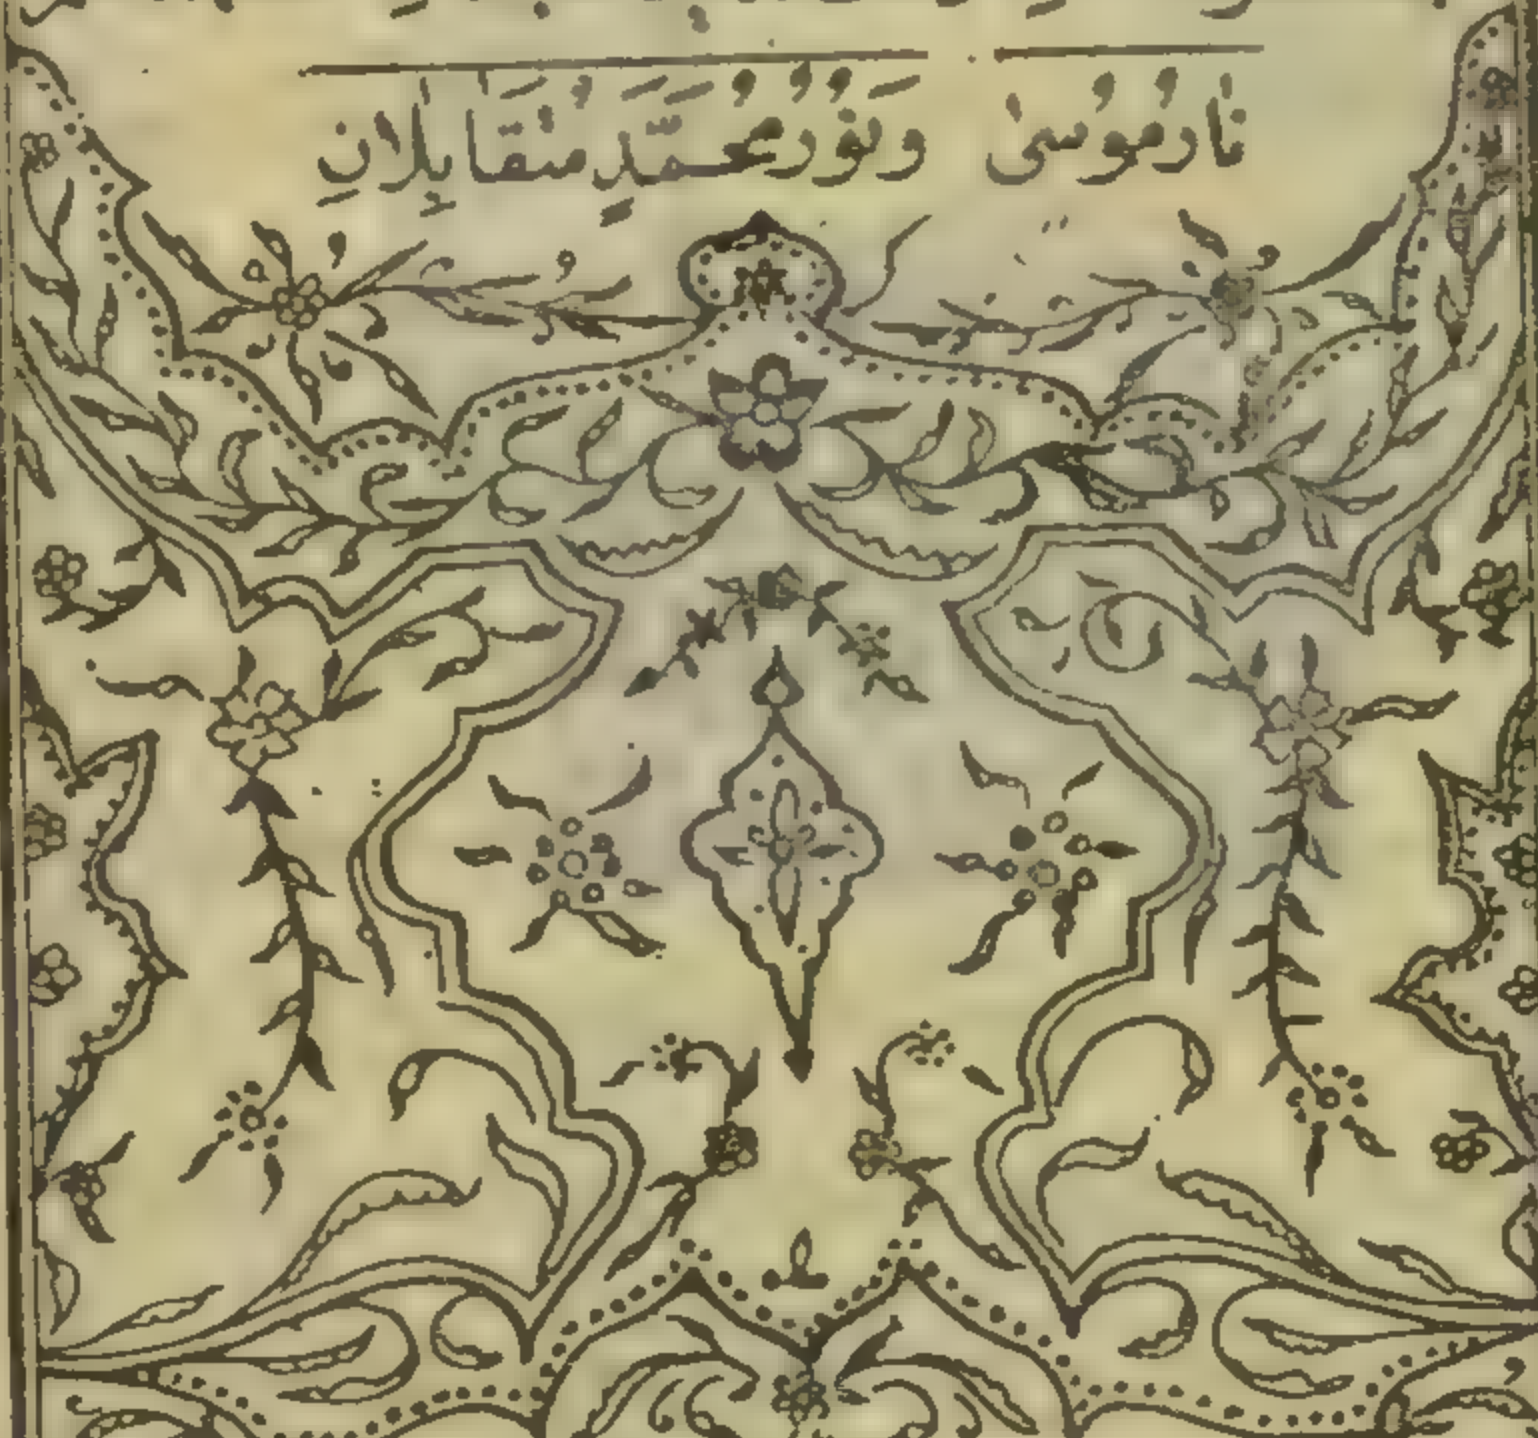 نَارُ مُوُسىٰ وَنُوُرُ مُحَمَّدٍ مُتَقَابِلَانِ